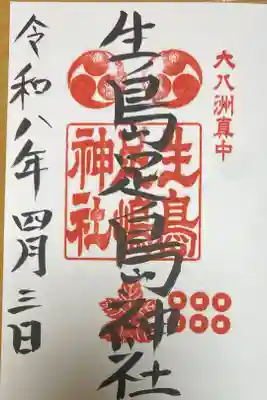 大八洲真中
生島足島神社
生島足嶋神社
令和八年四月三日